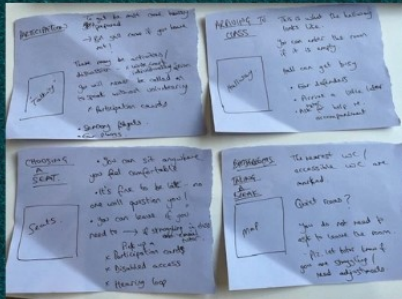 PARTICIPATION:
To get the most come
prepared
→ But get some if you have
not!
There may be activities /
discussion
You will never be called on
to speak without volunteering
* Participation cards
Talking
ARRIVING TO
CLASS
This is what the hallway
looks like
You can enter the room
if it is empty
Hall can get busy
• Ear defenders
• Arrive a little later
• Ask for help or
accompaniment
Hallway
CHOOSING
A
SEAT.
• You can sit anywhere
you feel comfortable
• It's fine to be late - no
one will question you!
• You can leave if you
need to → if struggling
Pick up a
* Participation card
* Disabled access
* Hearing loop
Seats.
BATHROOMS
TAKING
A
The nearest WC /
accessible WC are
marked.
Quiet rooms?
You do not need to
ask to leave the room.
Plz let tutor know if
you are struggling /
need adjustments
MAP